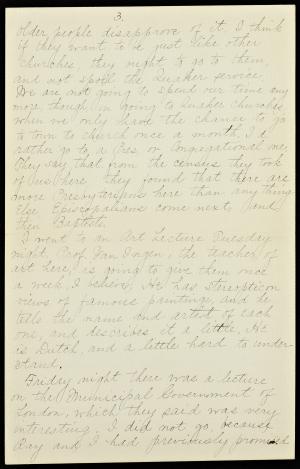 3.
older people disapprove of it. I think
if they want to be just like other
churches, they ought to go to them,
and not spoil the Quaker service.
We are not going to spend our time any
more though in going to Quaker churches
when we only have the chance to go
to town to church once a month, I'd
rather go to a Pres. or Congregational one.
They say that from the census they took
of us here they found that there are
more Presbyterians here than any thing
else Episcopalians come next, and
then Baptists.
I went to an Art Lecture Tuesday
night. Prof. Van Ingen, the teacher of
art here, is going to give them once
a week, I believe. He has stereopticon
views of famous paintings, and he
tells the name and artist of each
one, and describes it a little. He
is Dutch, and a little hard to under-
stand.
Friday night there was a lecture
on the Municipal Government of
London, which they said was very
interesting. I did not go, because
Ray and I had previously promised